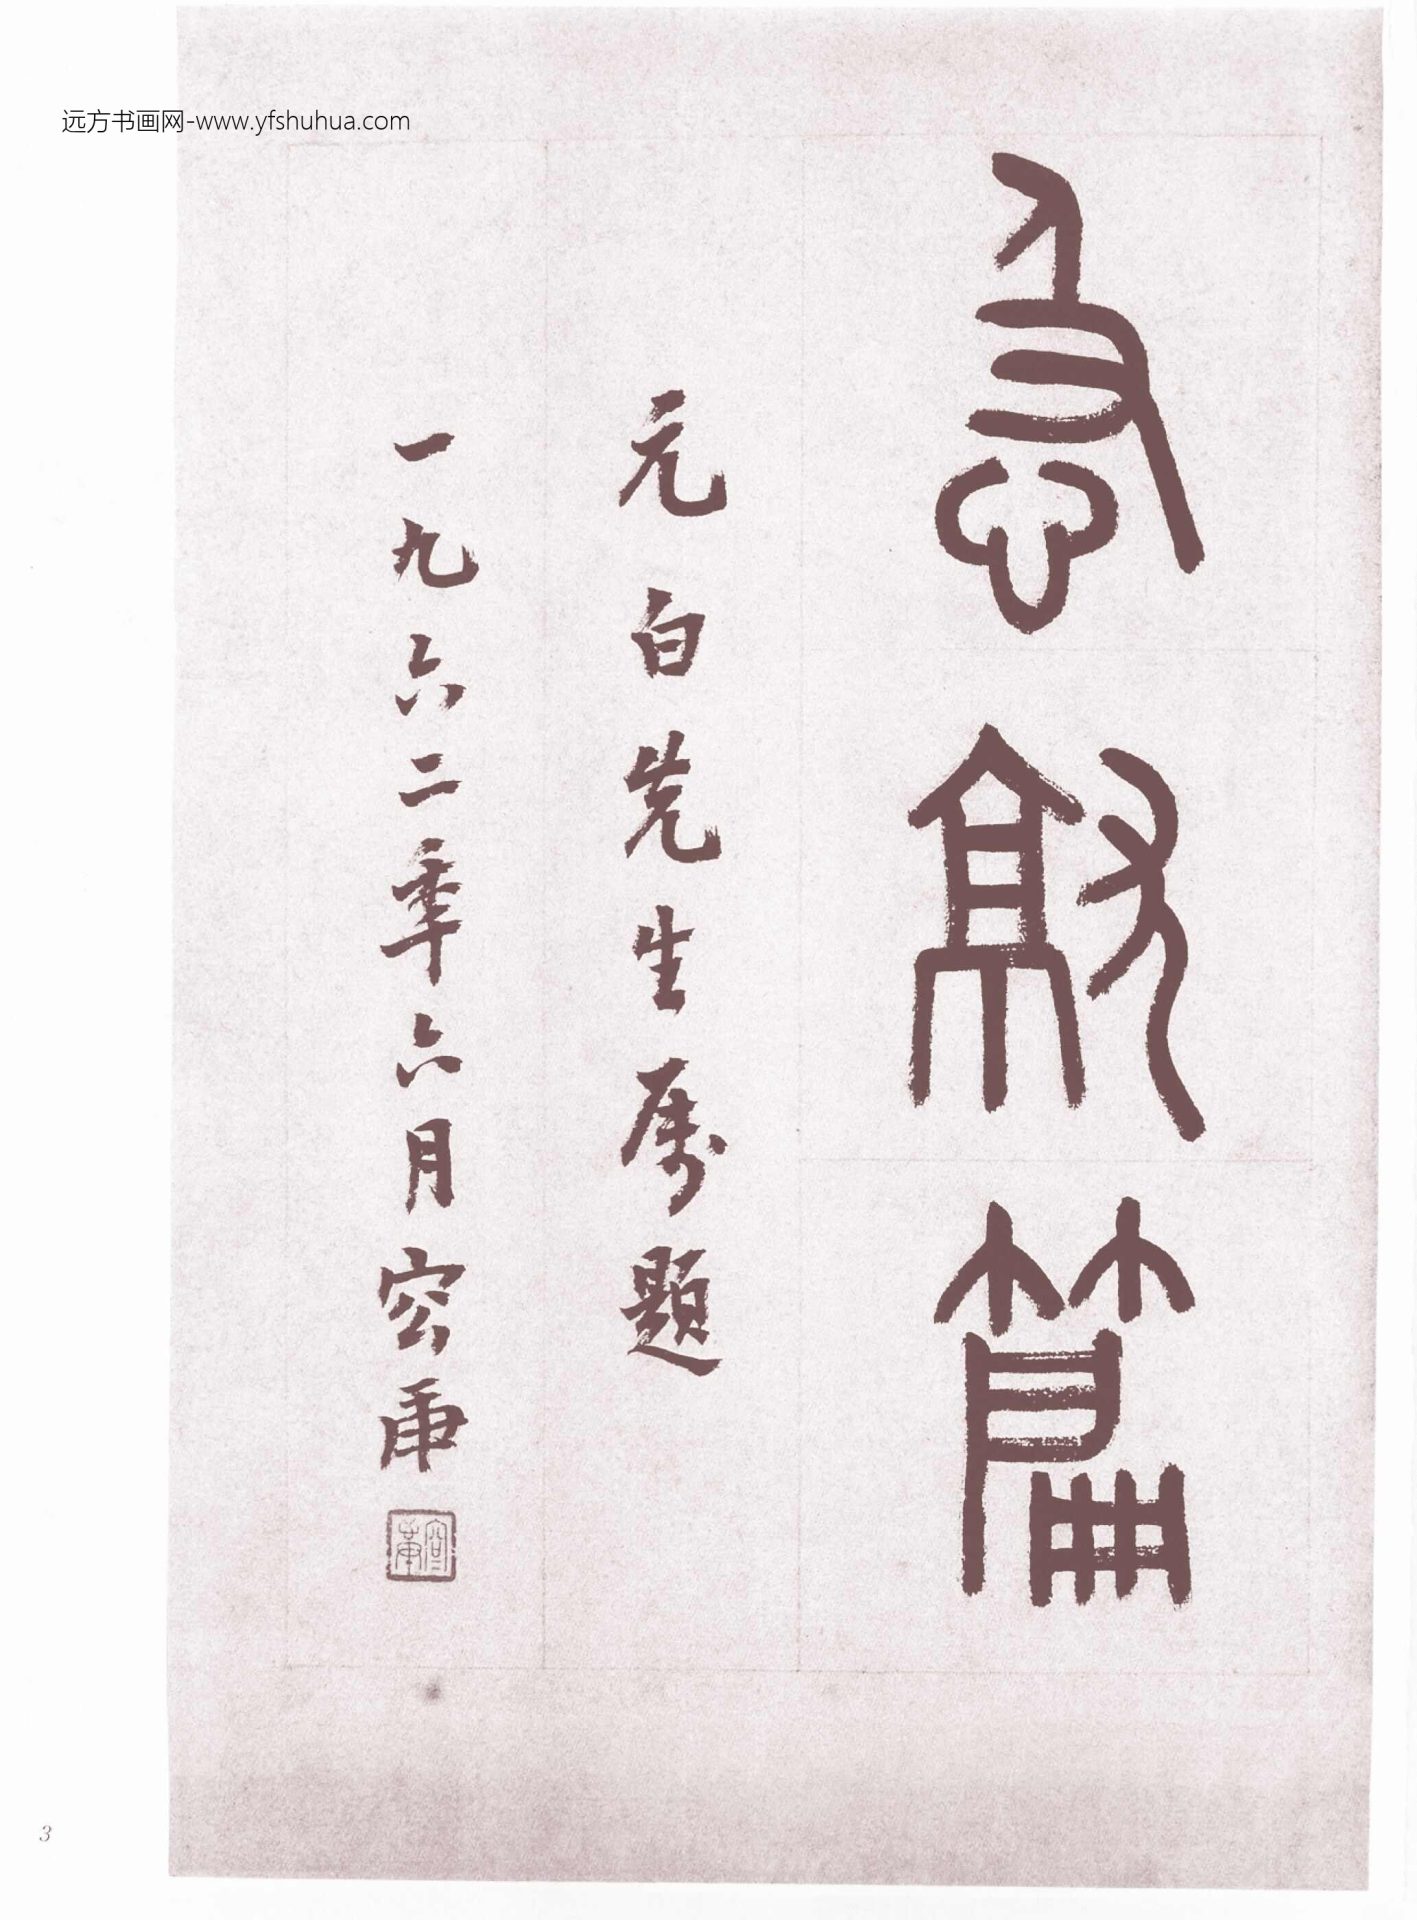 远方书画网-www.yfshuhua.com
急就篇
元白先生属題
一九六二年六月容庚
容庚
3